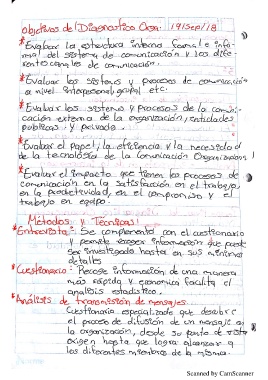 Objetivos del Diagnostico Orga. 19/Sep/18
*Evaluar la estructura interna formal e infor
mal del sistema de comunicación y los dife
rentes canales de comunicación.
*Evaluar los sistemas y procesos de comunicación
a nivel interpersonal, grupal etc.
*Evaluar los sistemas y procesos de la comuni-
cación externa de la organización, entidades
publicas y privado.
*Evaluar el papel, la eficiencia y la necesidad
de la tecnología de la Comunicación Organizacional
*Evaluar el impacto que tienen los procesos de
comunicación en la satisfacción en el trabajo,
en la productividad, en el compromiso y el
trabajo en equipo.
Métodos y Técnicas!
*Entrevista: Se complementa con el cuestionario
y permite recoger información que puede
ser investigada hasta en sus mínimos
detalles
*Cuestionario: Recoge información de una manera
más rápida y economica facilita el
analisis estadistico.
*Análisis de transmisión de mensajes.
Cuestionario especializado que descubre
el proceso de difusión de un mensaje en
la organización, desde su punto de
origen hasta que logra alcanzar a
los diferentes miembros de la misma.
Scanned by CamScanner